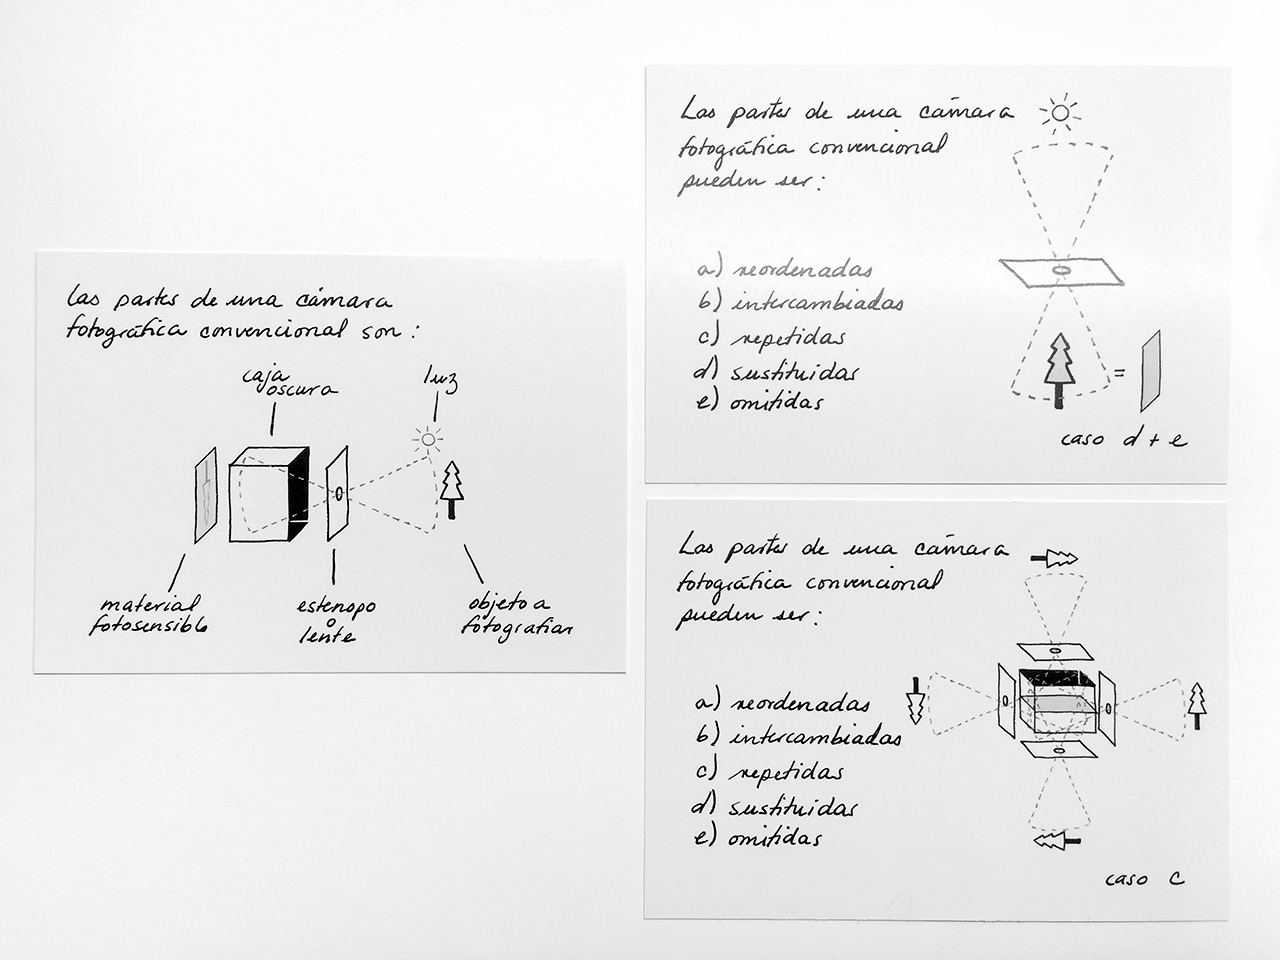 Las partes de una cámara
fotográfica convencional son:
caja
oscura
luz
material
fotosensible
estenopo
o
lente
objeto a
fotografiar
Las partes de una cámara
fotográfica convencional
pueden ser:
a) reordenadas
b) intercambiadas
c) repetidas
d) sustituidas
e) omitidas
=
caso d + e
Las partes de una cámara
fotográfica convencional
pueden ser:
a) reordenadas
b) intercambiadas
c) repetidas
d) sustituidas
e) omitidas
caso c